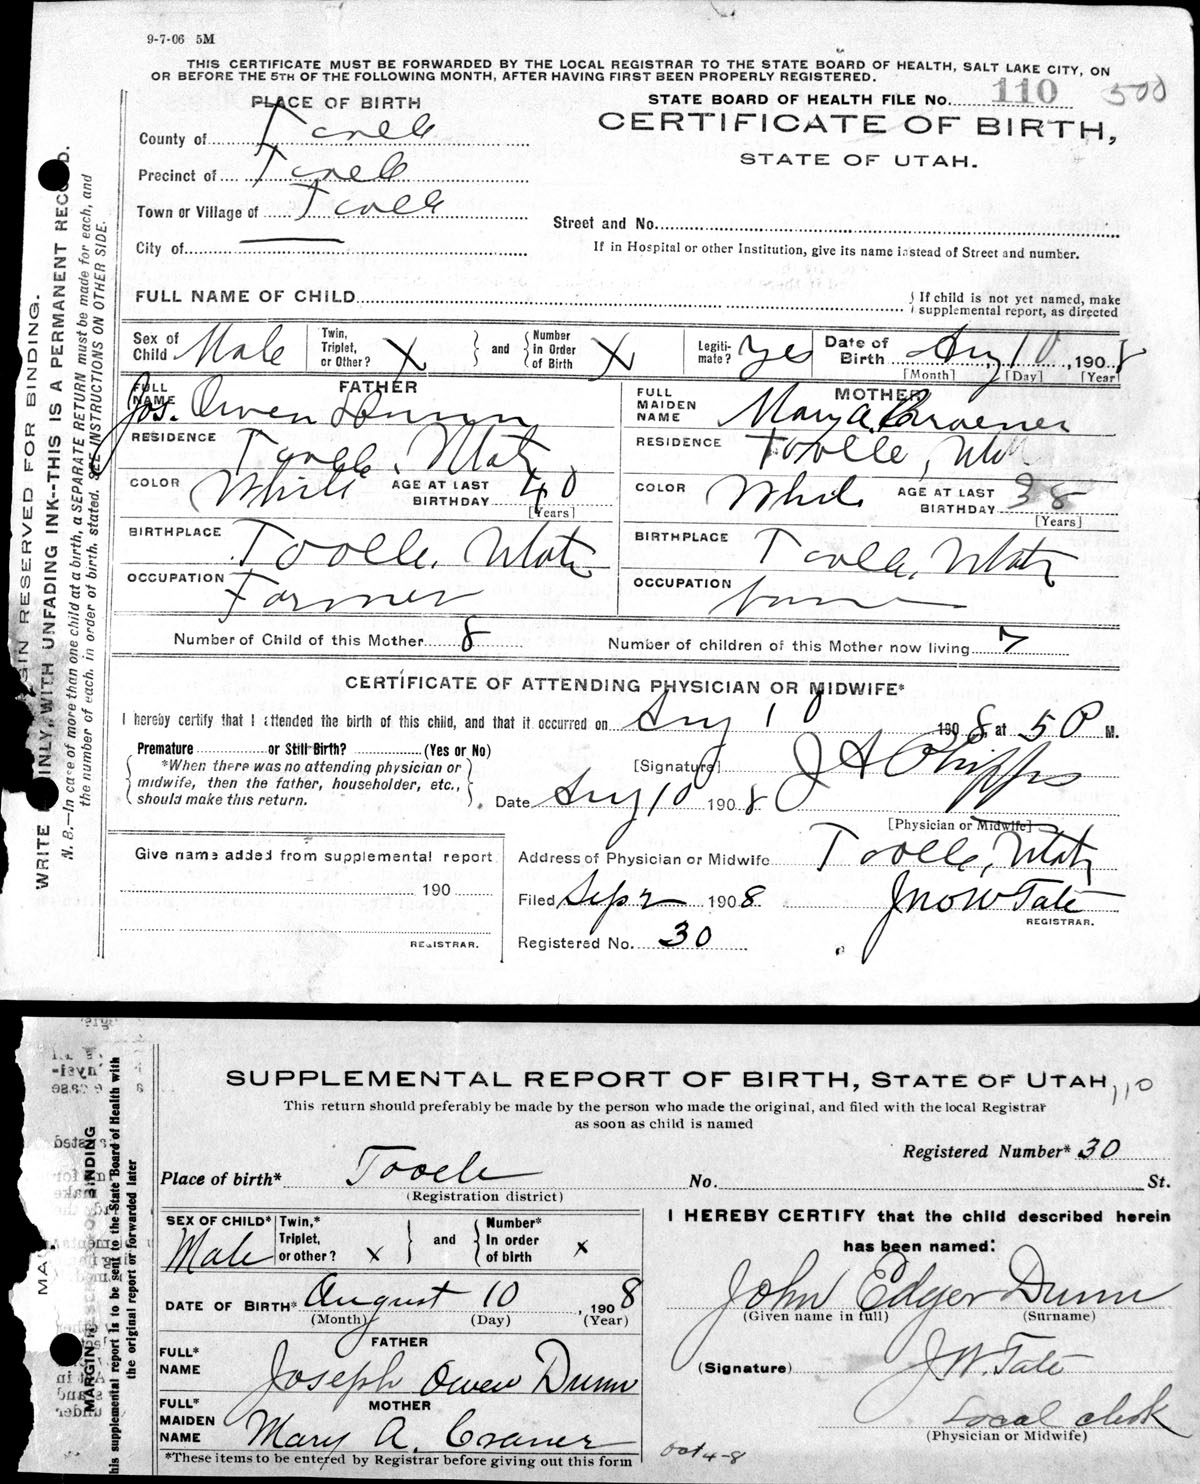 9-7-06 5M
THIS CERTIFICATE MUST BE FORWARDED BY THE LOCAL REGISTRAR TO THE STATE BOARD OF HEALTH, SALT LAKE CITY, ON
OR BEFORE THE 5TH OF THE FOLLOWING MONTH, AFTER HAVING FIRST BEEN PROPERLY REGISTERED.
PLACE OF BIRTH
STATE BOARD OF HEALTH FILE No. 110 500
CERTIFICATE OF BIRTH,
STATE OF UTAH.
County of Tooele
Precinct of Tooele
Town or Village of Tooele
Street and No.
City of
If in Hospital or other Institution, give its name instead of Street and number.
FULL NAME OF CHILD
If child is not yet named, make
supplemental report, as directed
Sex of Child Male
Twin, Triplet, or Other? X
and
Number in Order of Birth X
Legiti-mate? Yes
Date of Birth Aug 10, 1908
[Month] [Day] [Year]
FATHER
FULL NAME Jos. Owen Dunn
RESIDENCE Tooele, Utah
COLOR White AGE AT LAST BIRTHDAY 40
[Years]
BIRTHPLACE Tooele, Utah
OCCUPATION Farmer
MOTHER
FULL MAIDEN NAME Mary A. Craener
RESIDENCE Tooele, Utah
COLOR White AGE AT LAST BIRTHDAY 38
[Years]
BIRTHPLACE Tooele, Utah
OCCUPATION
Number of Child of this Mother 8
Number of children of this Mother now living 7
CERTIFICATE OF ATTENDING PHYSICIAN OR MIDWIFE*
I hereby certify that I attended the birth of this child, and that it occurred on Aug 10 1908, at 5 P M.
Premature or Still Birth? (Yes or No)
*When there was no attending physician or
midwife, then the father, householder, etc.,
should make this return.
[Signature] J A Phipps
Date Aug 10 1908
[Physician or Midwife]
Give name added from supplemental report
190
REGISTRAR.
Address of Physician or Midwife Tooele, Utah
Filed Sep 2 1908 Jno W Tate
REGISTRAR.
Registered No. 30
MARGIN RESERVED FOR BINDING.
WRITE PLAINLY, WITH UNFADING INK--THIS IS A PERMANENT RECORD.
N. B.--In case of more than one child at a birth, a SEPARATE RETURN must be made for each, and
the number of each, in order of birth, stated. SEE INSTRUCTIONS ON OTHER SIDE.
SUPPLEMENTAL REPORT OF BIRTH, STATE OF UTAH 110
This return should preferably be made by the person who made the original, and filed with the local Registrar
as soon as child is named
Registered Number* 30
Place of birth* Tooele
(Registration district)
No. St.
SEX OF CHILD* Male
Twin,* Triplet, or other? x
and
Number* In order of birth x
DATE OF BIRTH* August 10, 1908
(Month) (Day) (Year)
FATHER
FULL* NAME Joseph Owen Dunn
MOTHER
FULL* MAIDEN NAME Mary A. Craner
*These items to be entered by Registrar before giving out this form
I HEREBY CERTIFY that the child described herein
has been named:
John Edger Dunn
(Given name in full) (Surname)
(Signature) J. W. Tate
Local clerk
(Physician or Midwife)
Oct 4-8
his supplemental report is to be sent to the State Board of Health with
the original report or forwarded later